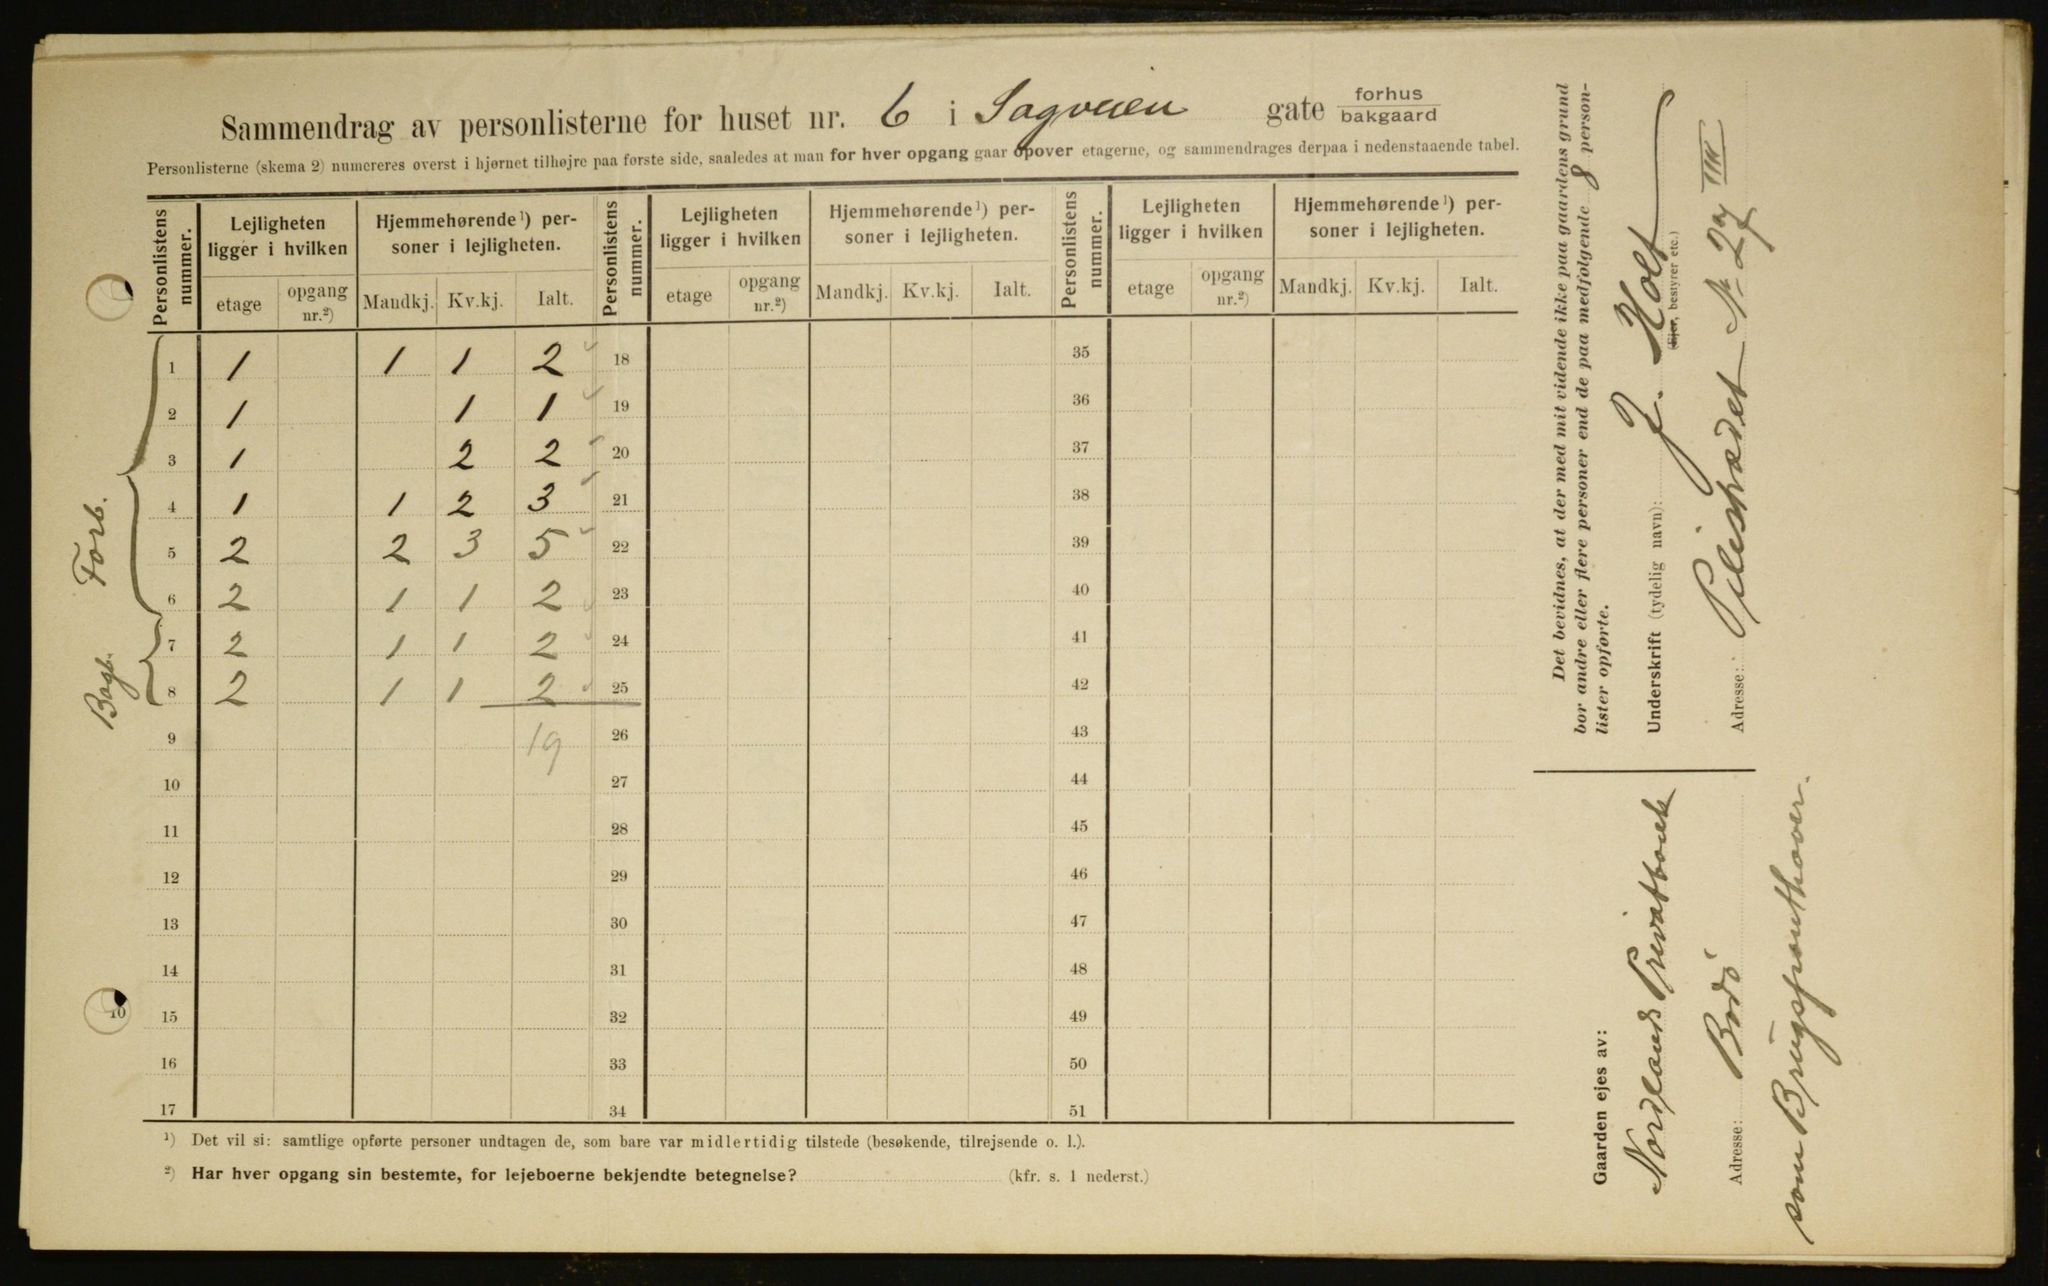 Sammendrag av personlisterne for huset nr. 6 i Sagveien gate forhus
bakgaard
Personlisterne (skema 2) numereres øverst i hjørnet tilhøjre paa første side, saaledes at man for hver opgang gaar opover etagerne, og sammendrages derpaa i nedenstaaende tabel.
Personlistens nummer. Lejligheten ligger i hvilken Hjemmehørende¹) personer i lejligheten. Personlistens nummer. Lejligheten ligger i hvilken Hjemmehørende¹) personer i lejligheten. Personlistens nummer. Lejligheten ligger i hvilken Hjemmehørende¹) personer i lejligheten.
etage opgang nr.²) Mandkj. Kv.kj. Ialt. etage opgang nr.²) Mandkj. Kv.kj. Ialt. etage opgang nr.²) Mandkj. Kv.kj. Ialt.
1 1 1 1 2 18 35
2 1 1 1 19 36
3 1 2 2 20 37
4 1 1 2 3 21 38
5 2 2 3 5 22 39
6 2 1 1 2 23 40
7 2 1 1 2 24 41
8 2 1 1 2 25 42
9 19 26 43
10 27 44
11 28 45
12 29 46
13 30 47
14 31 48
15 32 49
16 33 50
17 34 51
Forb.
Bagb.
¹) Det vil si: samtlige opførte personer undtagen de, som bare var midlertidig tilstede (besøkende, tilrejsende o. l.).
²) Har hver opgang sin bestemte, for lejeboerne bekjendte betegnelse? (kfr. s. 1 nederst.)
Det bevidnes, at der med mit vidende ikke paa gaardens grund
bor andre eller flere personer end de paa medfølgende 8 person-
lister opførte.
Underskrift (tydelig navn): J. Holt
(Ejer, bestyrer etc.)
Adresse: Pilestrædet No 27 III
Gaarden ejes av:
Nordlands Privatbank
Adresse: Bodö
som Brugspanthaver.